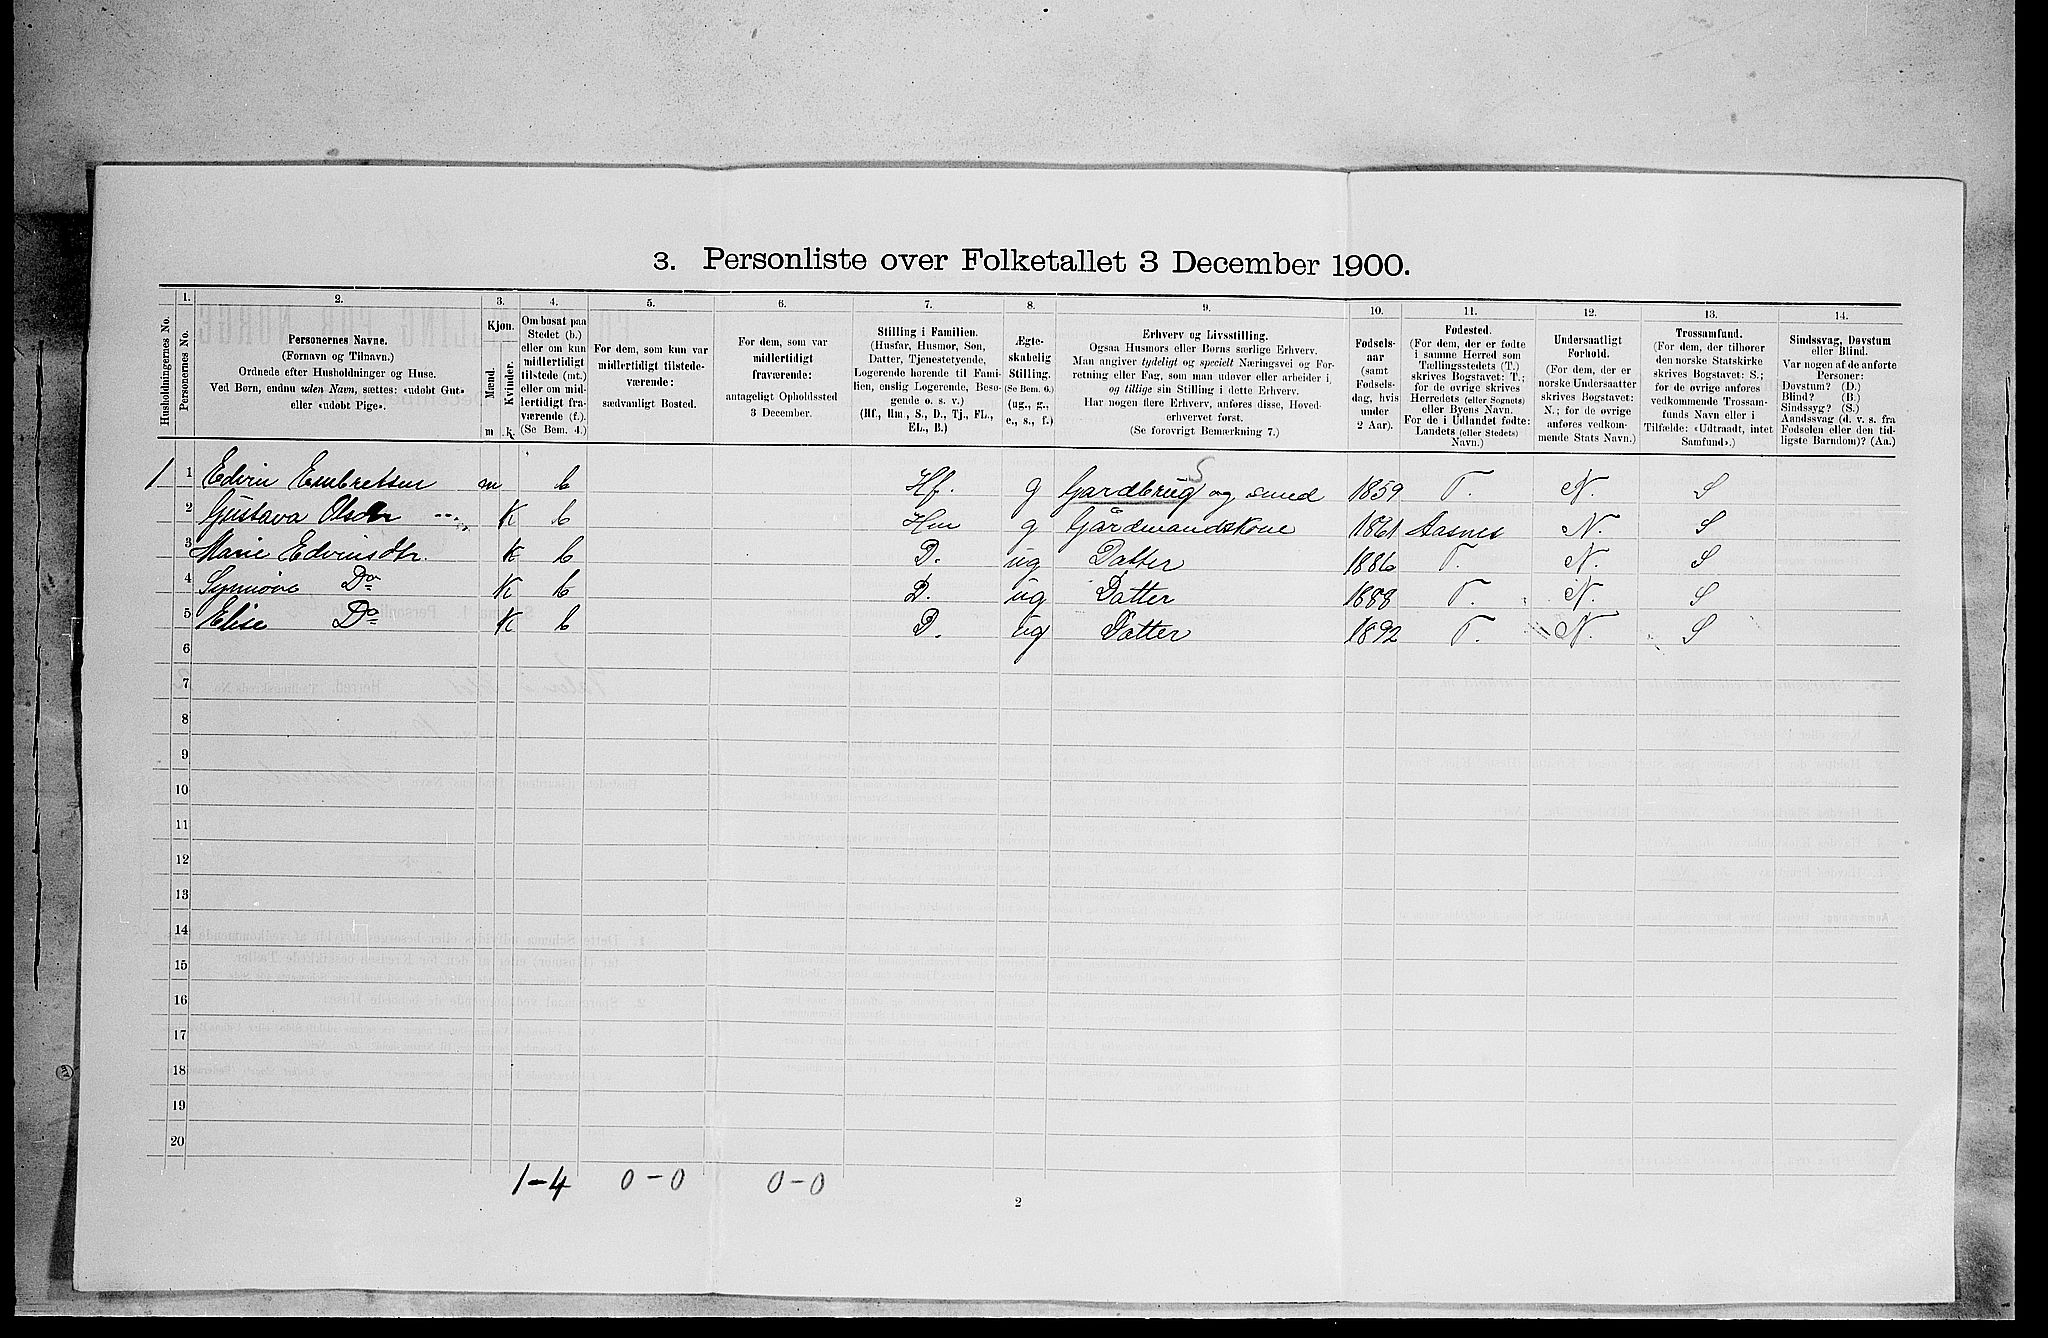 3. Personliste over Folketallet 3 December 1900.
Husholdningernes No.
1.
Personernes No.
2.
Personernes Navne.
(Fornavn og Tilnavn.)
Ordnede efter Husholdninger og Huse.
Ved Børn, endnu uden Navn, sættes: «udøbt Gut»
eller «udøbt Pige».
3.
Kjøn.
Mænd.
Kvinder.
m. k.
4.
Om bosat paa
Stedet (b.)
eller om kun
midlertidigt
tilstede (mt.)
eller om mid-
lertidigt fra-
værende (f.).
(Se Bem. 4.)
5.
For dem, som kun var
midlertidigt tilstede-
værende:
sædvanligt Bosted.
6.
For dem, som var
midlertidigt
fraværende:
antageligt Opholdssted
3 December.
7.
Stilling i Familien.
(Husfar, Husmor, Søn,
Datter, Tjenestetyende,
Logerende hørende til Fami-
lien, enslig Logerende, Besø-
gende o. s. v.)
(Hf., Hm., S., D., Tj., FL.,
EL., B.)
8.
Ægte-
skabelig
Stilling.
(Se Bem. 6.)
(ug., g.,
e., s., f.)
9.
Erhverv og Livsstilling.
Ogsaa Husmors eller Børns særlige Erhverv.
Man angiver tydeligt og specielt Næringsvei og For-
retning eller Fag, som man udøver eller arbeider i,
og tillige sin Stilling i dette Erhverv.
Har nogen flere Erhverv, anføres disse, Hoved-
erhvervet først.
(Se forøvrigt Bemærkning 7.)
10.
Fødsels-
aar
(samt
Fødsels-
dag, hvis
under
2 Aar).
11.
Fødested.
(For dem, der er fødte
i samme Herred som
Tællingsstedets (T.)
skrives Bogstavet: T.;
for de øvrige skrives
Herredets (eller Sognets)
eller Byens Navn.
For de i Udlandet fødte:
Landets (eller Stedets)
Navn.)
12.
Undersaatligt
Forhold.
(For dem, der er
norske Undersaatter
skrives Bogstavet:
N.; for de øvrige
anføres vedkom-
mende Stats Navn.)
13.
Trossamfund.
(For dem, der tilhører
den norske Statskirke
skrives Bogstavet: S.;
for de øvrige anføres
vedkommende Trossam-
funds Navn eller i
Tilfælde: «Udtraadt, intet
Samfund».)
14.
Sindssvag, Døvstum
eller Blind.
Var nogen af de anførte
Personer:
Døvstum? (D.)
Blind? (B.)
Sindssyg? (S.)
Aandssvag (d. v. s. fra
Fødselen eller den tid-
ligste Barndom)? (Aa.)
S
1 1 Edvin Embretsen m b Hf. g Gardbrug og smed 1859 T. N. S
2 Gustava Olsdtr K b Hm g Gårdmandskone 1861 Aasnes N. S
3 Marie Edvinsdtr. K b D. ug Datter 1886 T. N. S
4 Synnøve Do K b D. ug Datter 1888 T. N. S
5 Elise Do K b D. ug Datter 1892 T. N. S
6
7
8
9
10
11
12
13
14
15
16
17
18
19
20
1-4 0-0 0-0
2